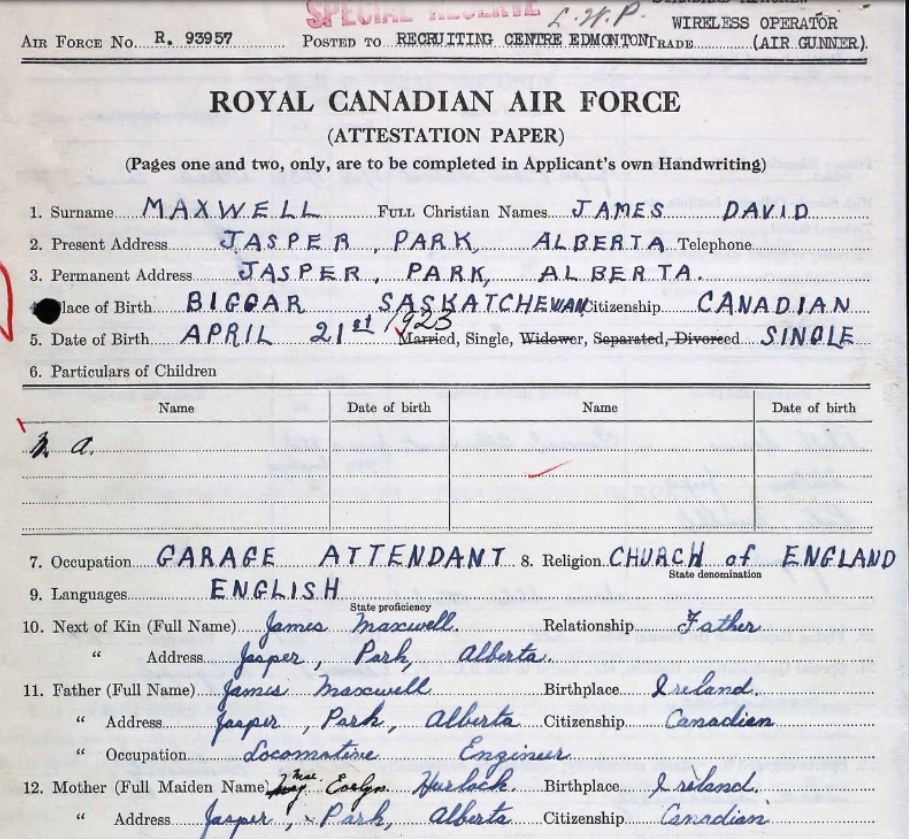 SPECIAL RESERVE L.W.P. STANDARD
WIRELESS OPERATOR
AIR FORCE No. R. 93957 POSTED TO RECRUITING CENTRE EDMONTON TRADE (AIR GUNNER).
ROYAL CANADIAN AIR FORCE
(ATTESTATION PAPER)
(Pages one and two, only, are to be completed in Applicant's own Handwriting)
1. Surname MAXWELL FULL Christian Names JAMES DAVID
2. Present Address JASPER, PARK, ALBERTA Telephone
3. Permanent Address JASPER, PARK, ALBERTA.
lace of Birth BIGGAR SASKATCHEWAN Citizenship CANADIAN
5. Date of Birth APRIL 21st 1923 Married, Single, Widower, Separated, Divorced SINGLE
6. Particulars of Children
Name Date of birth Name Date of birth
N a.
7. Occupation GARAGE ATTENDANT 8. Religion CHURCH of ENGLAND
State denomination
9. Languages ENGLISH
State proficiency
10. Next of Kin (Full Name) James Maxwell. Relationship Father
" Address Jasper, Park, Alberta.
11. Father (Full Name) James Maxwell Birthplace Ireland.
" Address Jasper, Park, Alberta Citizenship Canadian
" Occupation Locomotive Engineer
12. Mother (Full Maiden Name) Mae Evelyn Hurlock. Birthplace Ireland.
" Address Jasper, Park, Alberta Citizenship Canadian